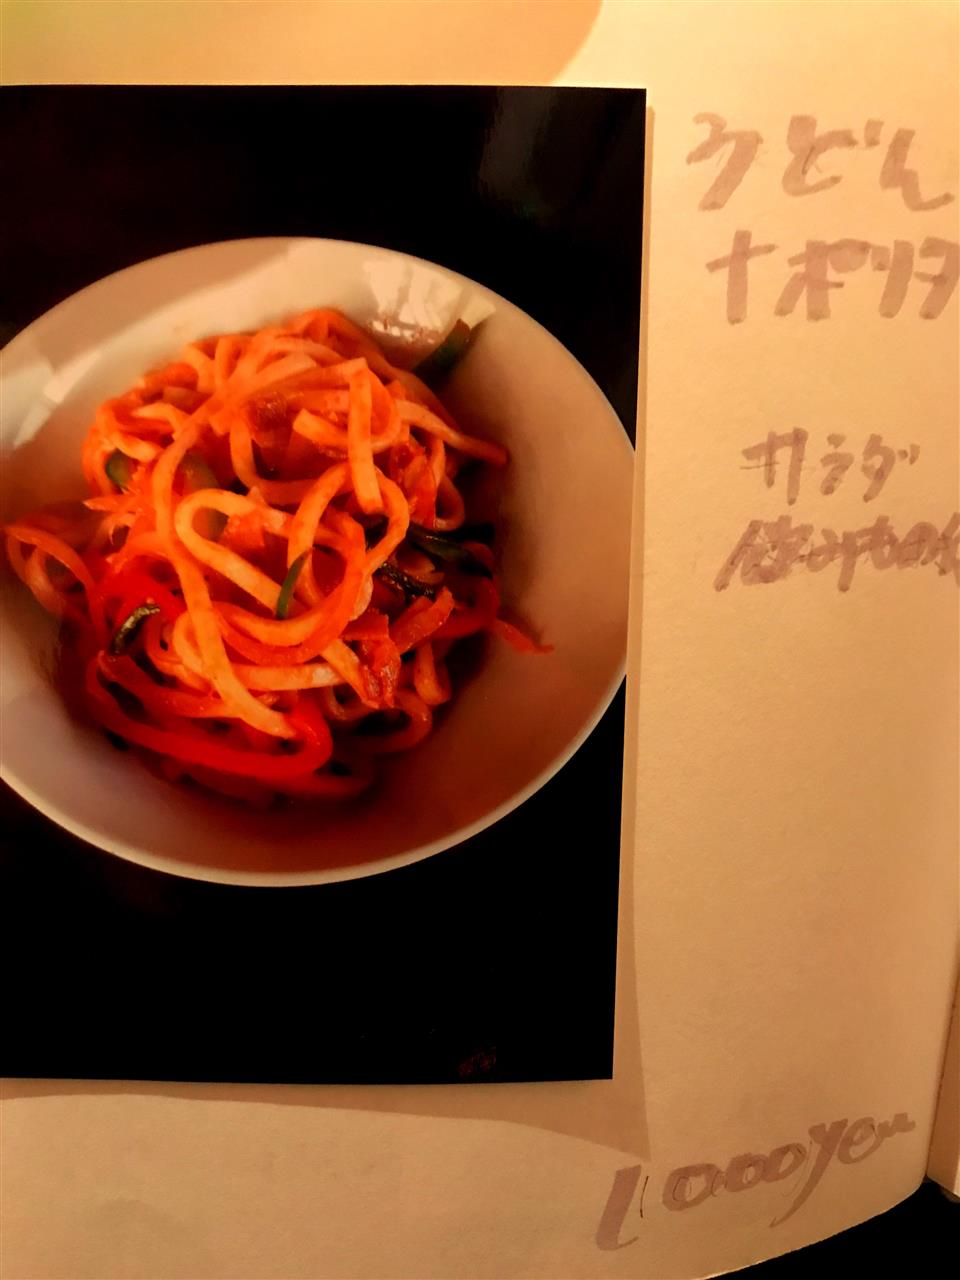 うどん
ナポリタ
サラダ
飲みもの付
1000yen